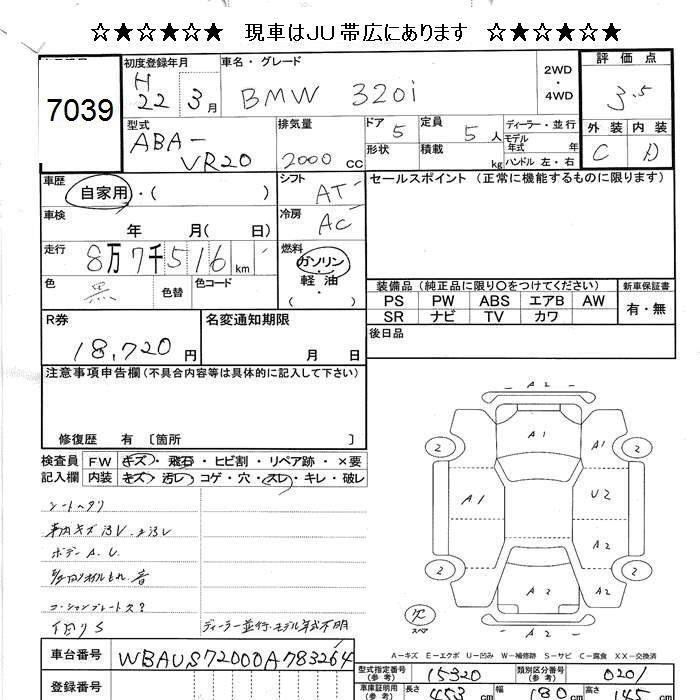 ☆★☆★☆★ 現車はJU帯広にあります ☆★☆★☆★
7039
初度登録年月
H 22 3月
車名・グレード
BMW 320i
2WD
・
4WD
評価点
3.5
外装 内装
C D
型式
ABA-
VR20
排気量
2000 cc
ドア 5
形状
定員 5人
積載 kg
ディーラー・並行
モデル年式 年
ハンドル 左・右
車歴
自家用・( )
シフト
AT
セールスポイント (正常に機能するものに限ります)
車検
年 月( 日)
冷房
AC
走行
8万7千516km
燃料
ガソリン
・
軽油
( )
色
黒
色替
色コード
装備品 (純正品に限り○をつけてください)
新車保証書
PS PW ABS エアB AW
有・無
SR ナビ TV カワ
R券
18,720円
名変通知期限
月 日
後日品
注意事項申告欄(不具合内容等は具体的に記入して下さい)
修復歴 有 〔箇所 〕
検査員 FW キズ・飛石・ヒビ割・リペア跡・×要
記入欄 内装 キズ・汚レ・コゲ・穴・スレ・キレ・破レ
シートヘタリ
ボデーA.U
ディーラー並行、モデル年式不明
- A2 -
A1
A1
A1
U2
A2
A2
2
2
2
2
スペア
- A2 -
A-キズ E-エクボ U-凹み W-補修跡 S-サビ C-腐食 XX-交換済
車台番号
WBAUS72000A783264
登録番号
型式指定番号(参考)
15320
類別区分番号(参考)
0201
車庫証明用(参考)
長さ 453cm
幅 180cm
高さ 145cm